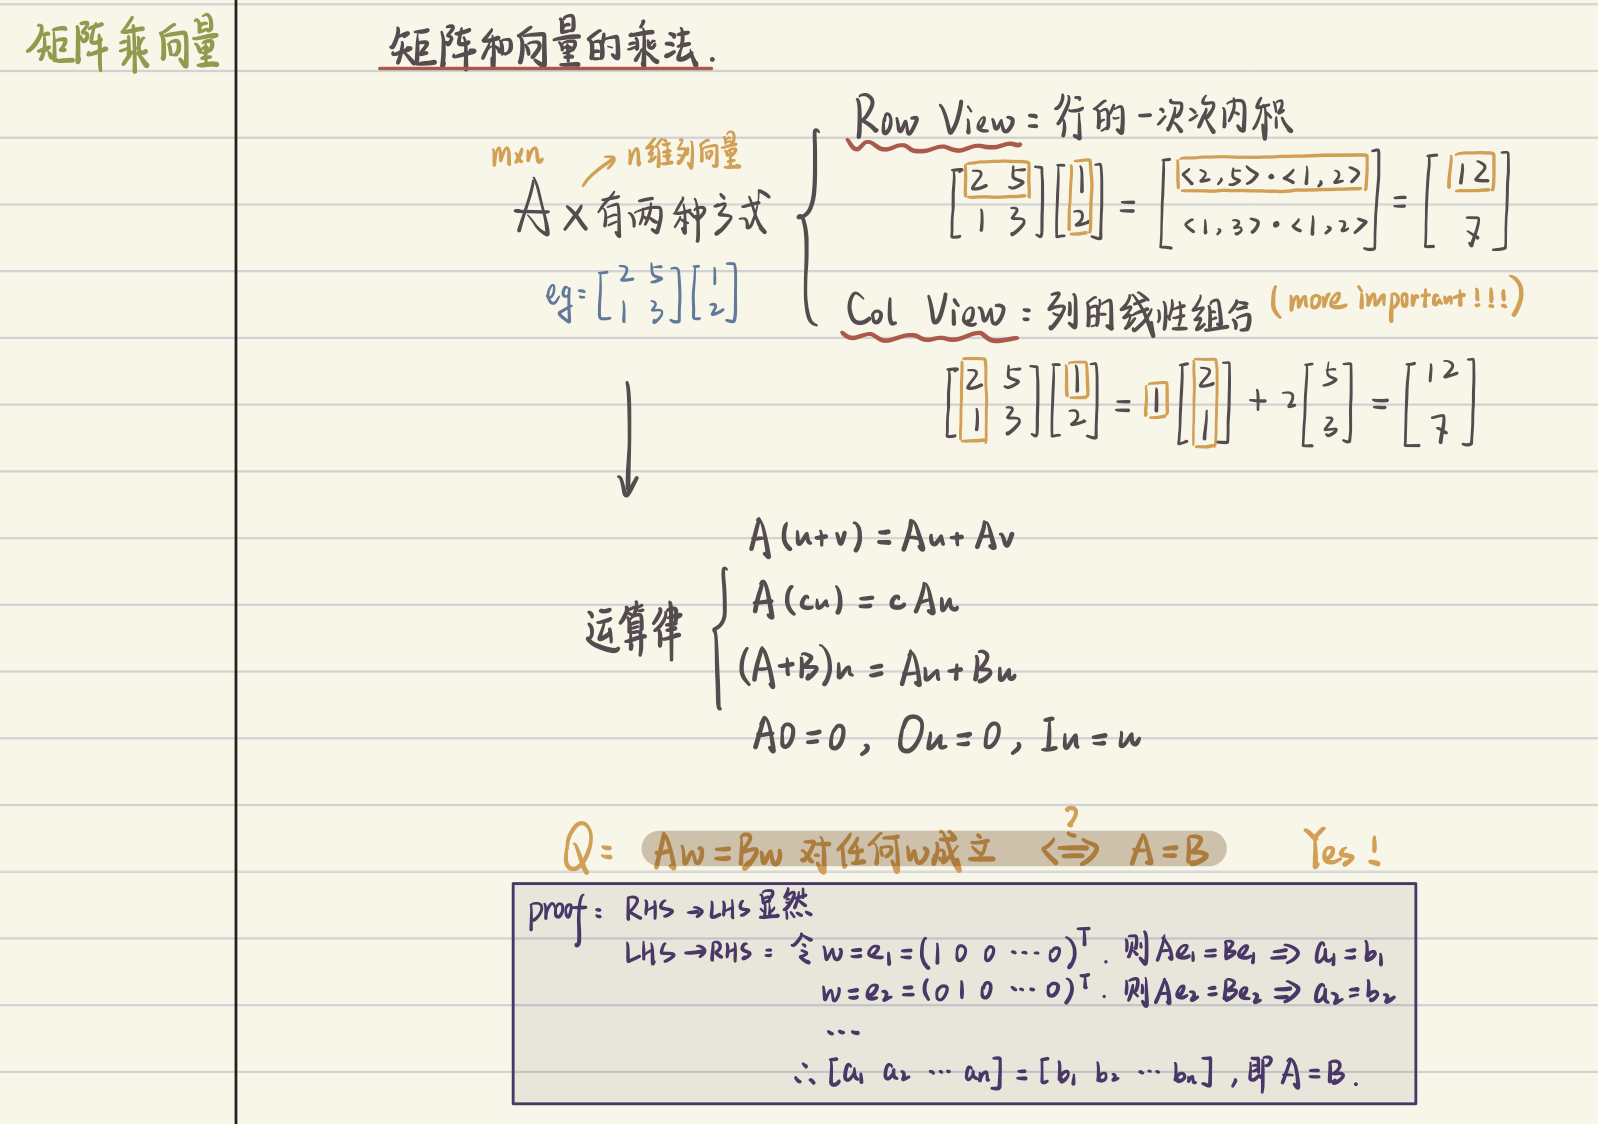 矩阵乘向量
矩阵和向量的乘法.
Row View: 行的一次次内积
m×n
n维列向量
Ax有两种方式
[2 5; 1 3][1; 2] = [<2,5>·<1,2>; <1,3>·<1,2>] = [12; 7]
eg: [2 5; 1 3][1; 2]
Col View: 列的线性组合 (more important!!!)
[2 5; 1 3][1; 2] = 1[2; 1] + 2[5; 3] = [12; 7]
运算律
A(u+v) = Au + Av
A(cu) = cAu
(A+B)u = Au + Bu
A0=0, Ou=0, Iu=u
Q: Aw=Bw 对任何w成立 <=>? A=B Yes!
proof: RHS→LHS 显然
LHS→RHS: 令 w=e₁=(1 0 0 ⋯ 0)ᵀ. 则Ae₁=Be₁ ⇒ a₁=b₁
w=e₂=(0 1 0 ⋯ 0)ᵀ. 则Ae₂=Be₂ ⇒ a₂=b₂
⋯
∴[a₁ a₂ ⋯ an]=[b₁ b₂ ⋯ bn], 即A=B.